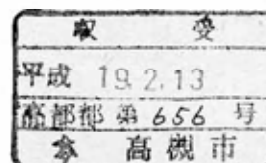 収 受
平成 19.2.13
高都都 第 656 号
高槻市